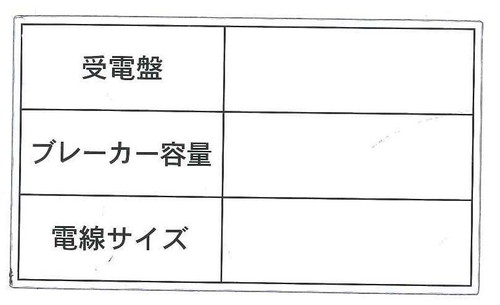 受電盤
ブレーカー容量
電線サイズ